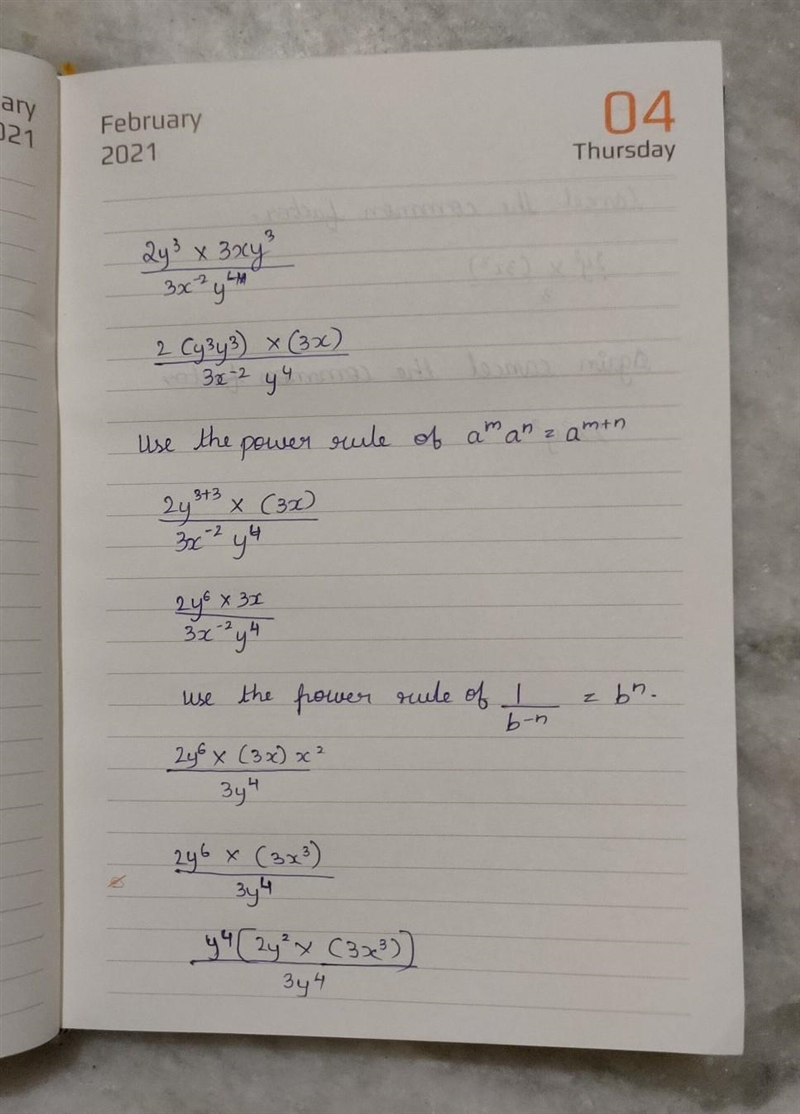 ary
021
February
2021
04
Thursday
2y³ × 3xy³
3x⁻² y⁴
2 (y³y³) × (3x)
3x⁻² y⁴
Use the power rule of aᵐ aⁿ = aᵐ⁺ⁿ
2y³⁺³ × (3x)
3x⁻² y⁴
2y⁶ × 3x
3x⁻² y⁴
Use the power rule of 1/b⁻ⁿ = bⁿ.
2y⁶ × (3x) x²
3y⁴
2y⁶ × (3x³)
3y⁴
y⁴ [2y² × (3x³)]
3y⁴